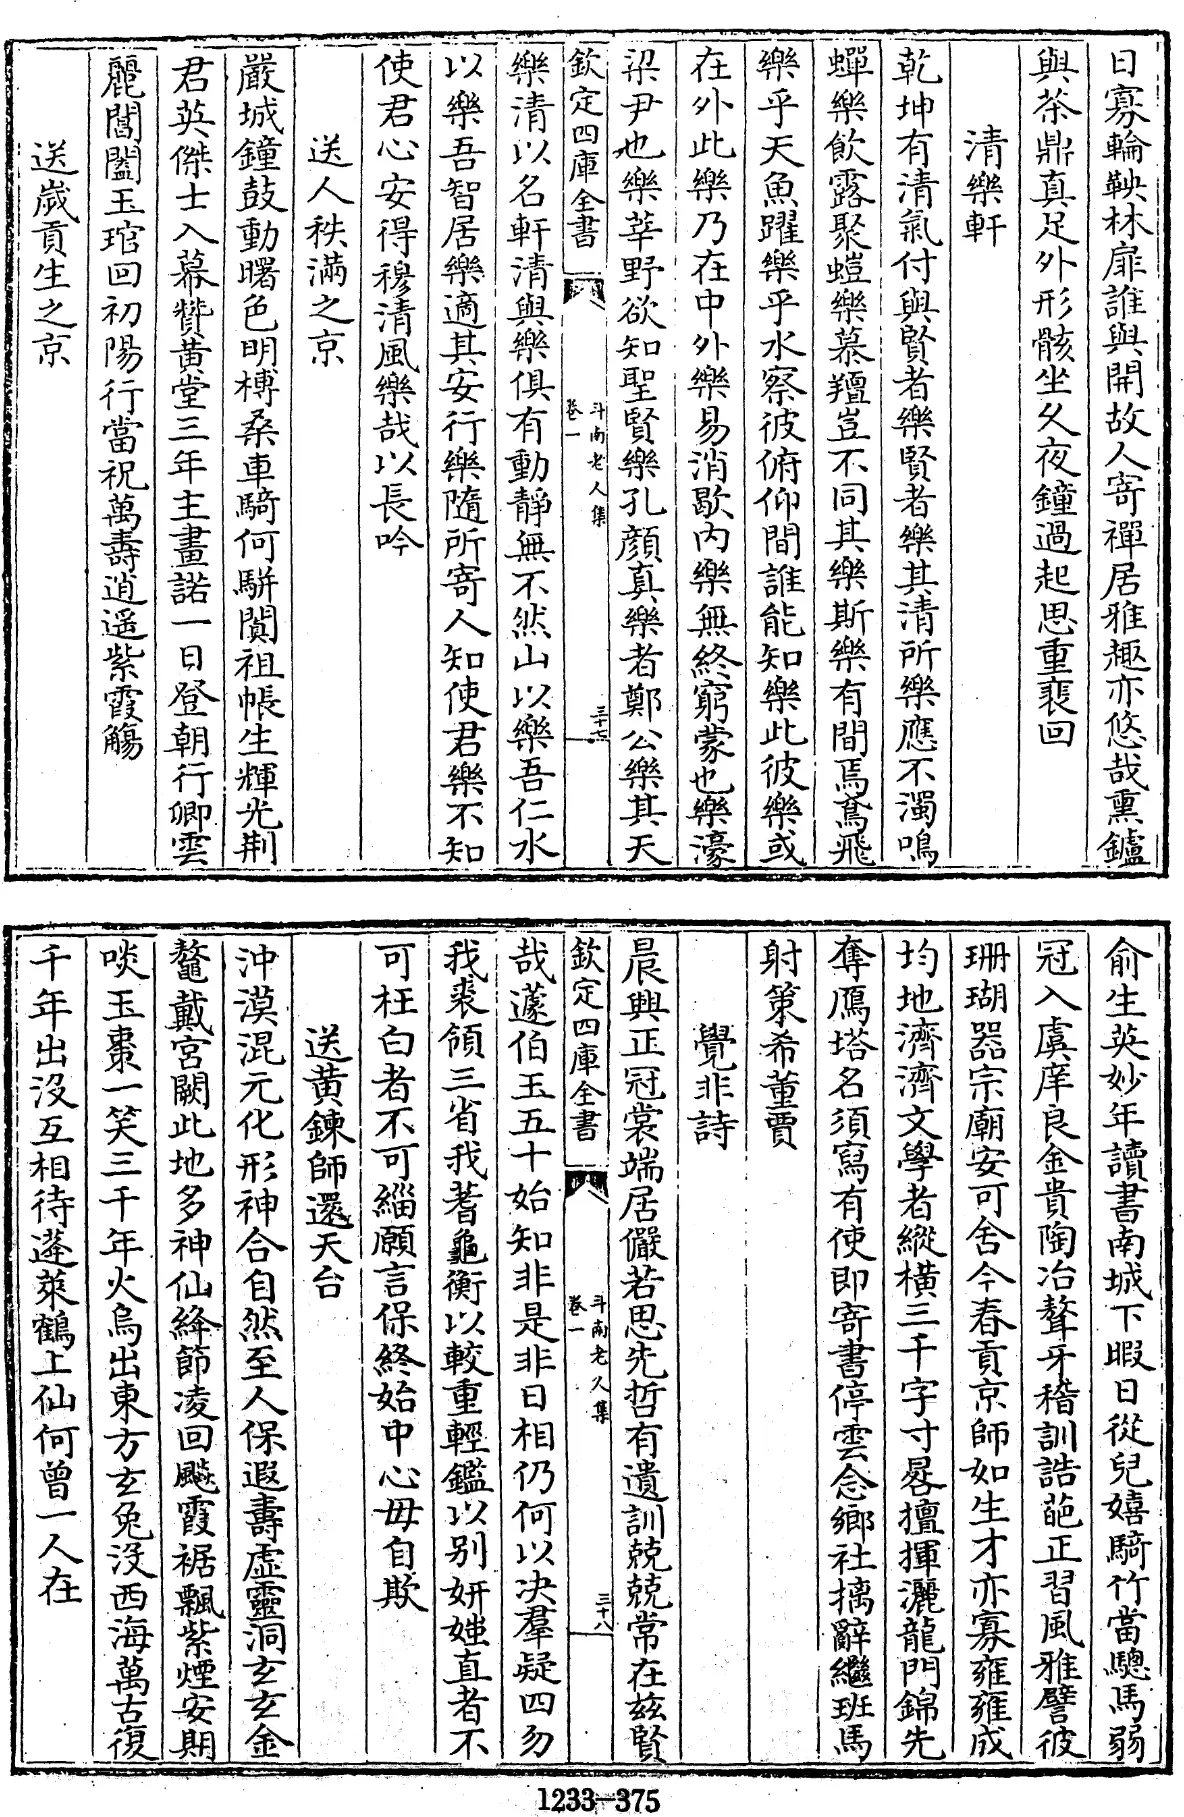 日寡輪鞅林扉誰與開故人寄禪居雅趣亦悠哉熏鑪
與茶鼎真足外形骸坐久夜鐘過起思重裴回
清樂軒
乾坤有清氣付與賢者樂賢者樂其清所樂應不濁鳴
蟬樂飲露聚螘樂慕羶豈不同其樂斯樂有間焉鳶飛
樂乎天魚躍樂乎水察彼俯仰間誰能知樂此彼樂或
在外此樂乃在中外樂易消歇内樂無終窮蒙也樂濠
梁尹也樂莘野欲知聖賢樂孔顔真樂者鄭公樂其天
欽定四庫全書
斗南老人集
卷一
三十七
樂清以名軒清與樂俱有動静無不然山以樂吾仁水
以樂吾智居樂適其安行樂隨所寄人知使君樂不知
使君心安得穆清風樂哉以長吟
送人秩滿之京
嚴城鐘鼓動曙色明榑桑車騎何駢闐祖帳生輝光荆
君英傑士入幕贊黄堂三年主畫諾一日登朝行卿雲
麗閶闔玉琯回初陽行當祝萬壽逍遥紫霞觴
送歲貢生之京
俞生英妙年讀書南城下暇日從兒嬉騎竹當驄馬弱
冠入虞庠良金貴陶冶聱牙稽訓誥葩正習風雅譬彼
珊瑚器宗廟安可舍今春貢京師如生才亦寡雍雍成
均地濟濟文學者縱横三千字寸晷擅揮灑龍門錦先
奪鴈塔名須寫有使即寄書停雲念鄉社摛辭繼班馬
射策希董賈
覺非詩
晨興正冠裳端居儼若思先哲有遺訓兢兢常在兹賢
欽定四庫全書
斗南老人集
卷一
三十八
哉蘧伯玉五十始知非是非日相仍何以决羣疑四勿
我裘領三省我蓍龜衡以較重輕鑑以别妍媸直者不
可枉白者不可緇願言保終始中心毋自欺
送黄鍊師還天台
沖漠混元化形神合自然至人保遐壽虚靈洞玄玄金
鼇戴宮闕此地多神仙絳節凌回飈霞裾飄紫煙安期
啖玉棗一笑三千年火烏出東方玄兔没西海萬古復
千年出没互相待蓬萊鶴上仙何曾一人在
1233—375